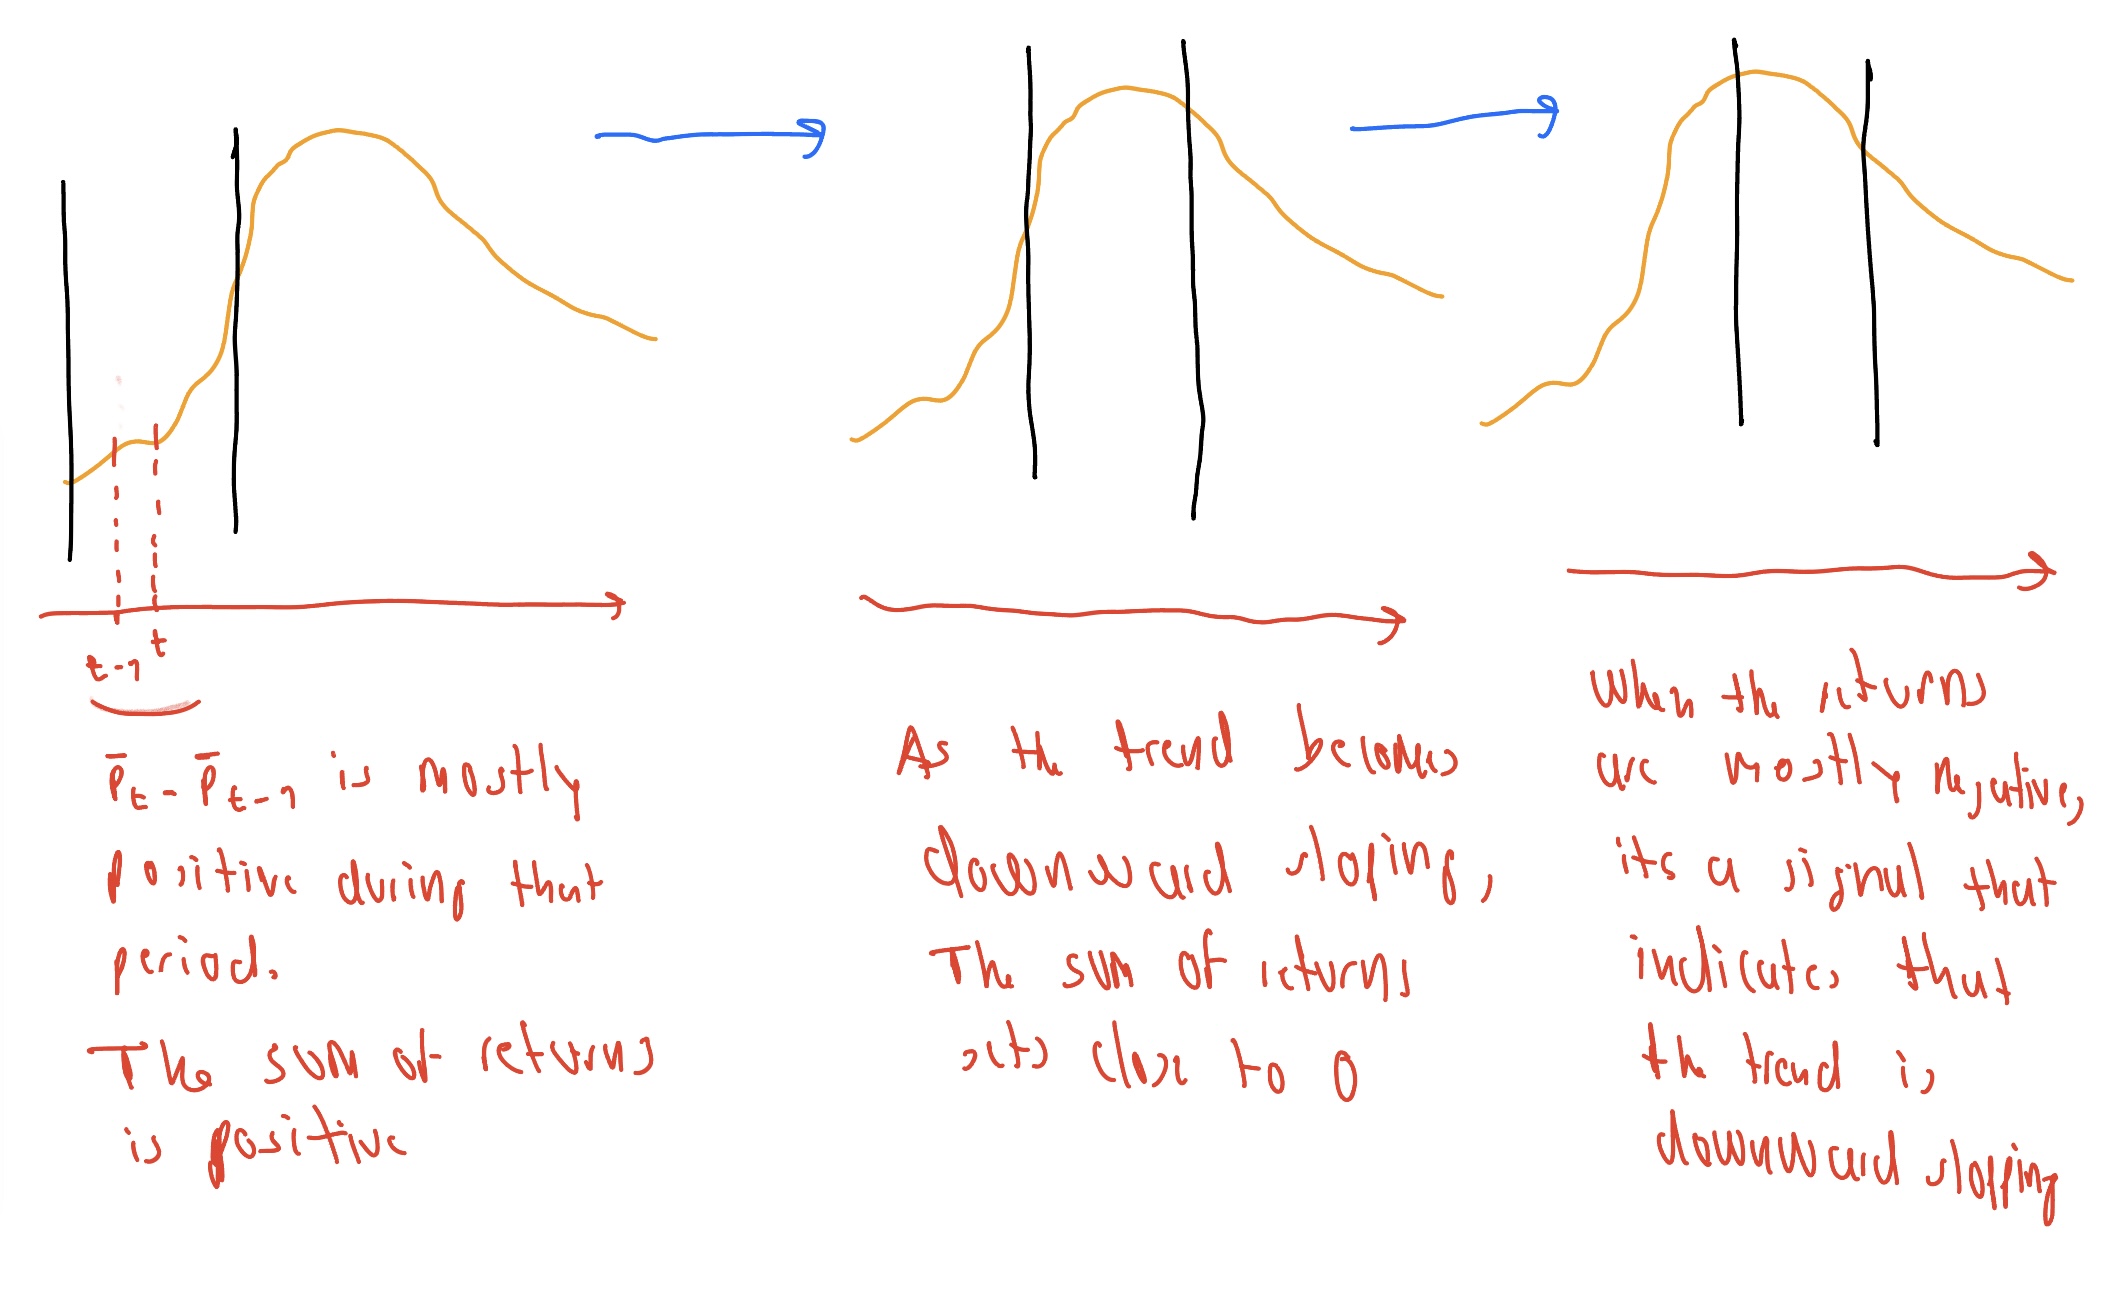 t-1 t
P̄t - P̄t-1 is mostly
positive during that
period.
The sum of returns
is positive
As the trend becomes
downward sloping,
The sum of returns
gets close to 0
When the returns
are mostly negative,
its a signal that
indicates that
the trend is
downward sloping